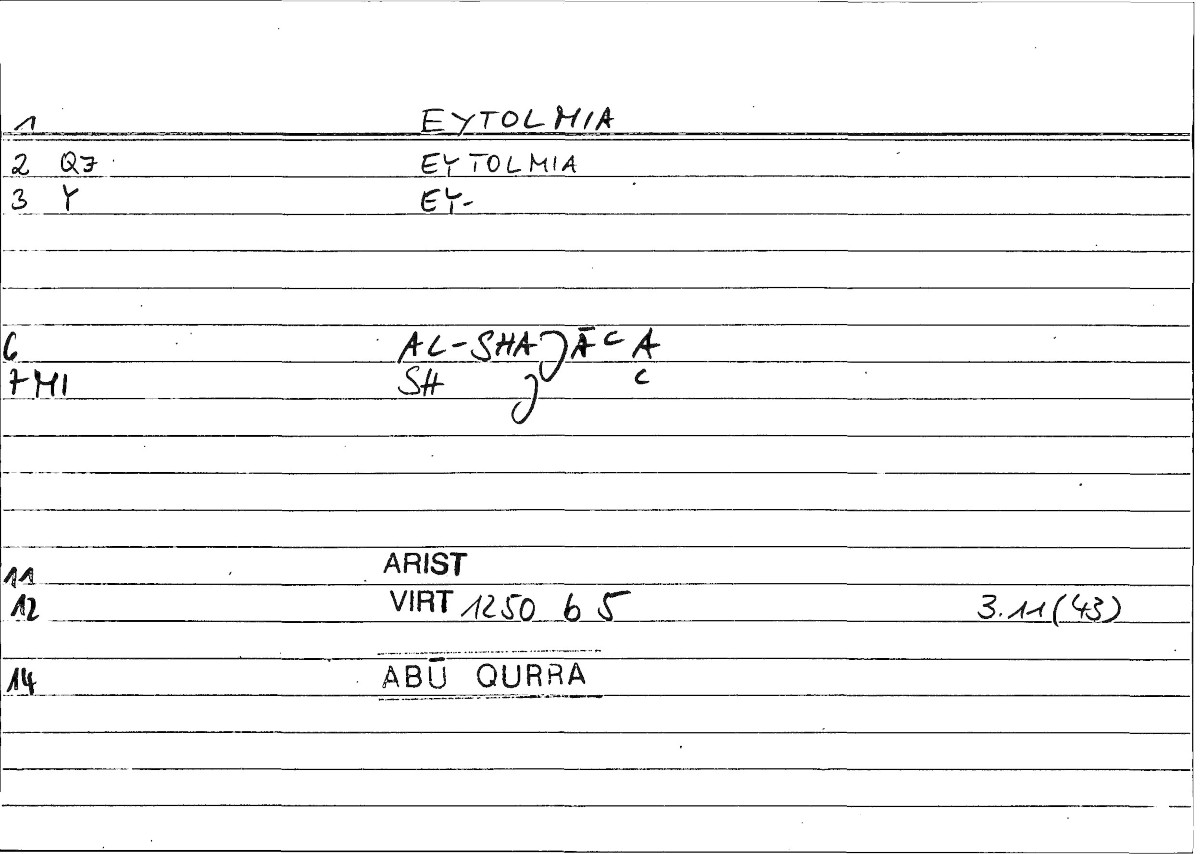 1 EYTOLMIA
2 QZ EYTOLMIA
3 Y EY-
6 AL-SHAJĀCA
7 MI SH J C
11 ARIST
12 VIRT 1250 b 5 3.11(43)
14 ABŪ QURRA